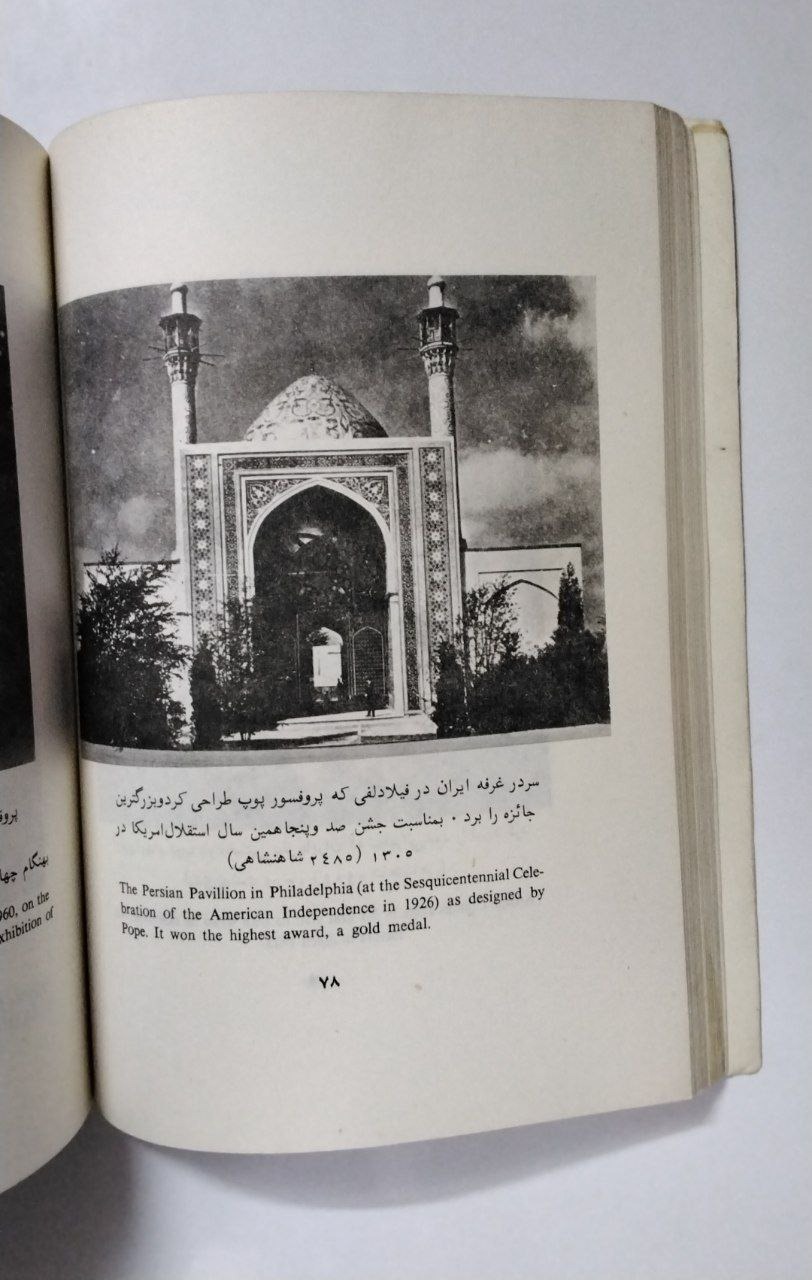 سردر غرفه ایران در فیلادلفی که پروفسور پوپ طراحی کردوبزرگترین
جائزه را برد ۰ بمناسبت جشن صد وپنجاهمین سال استقلال‌امریکا در
۱۳۰۵ (۲٤۸۵ شاهنشاهی)
The Persian Pavillion in Philadelphia (at the Sesquicentennial Cele-
bration of the American Independence in 1926) as designed by
Pope. It won the highest award, a gold medal.
۷۸
بهنگام
960, on the
xhibition of